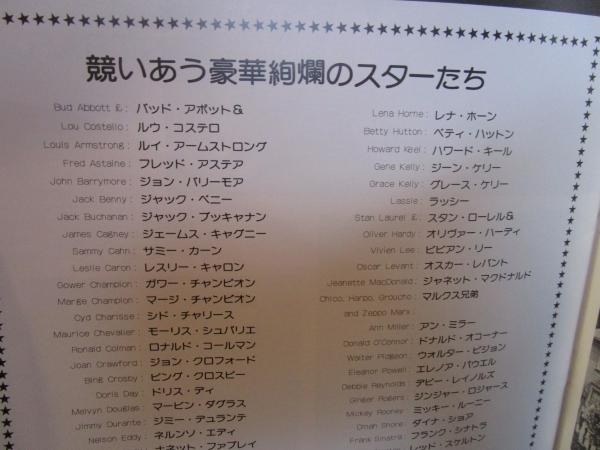 競いあう豪華絢爛のスターたち
Bud Abbott &: バッド・アボット&
Lou Costello: ルウ・コステロ
Louis Armstrong: ルイ・アームストロング
Fred Astaine: フレッド・アステア
John Barrymore: ジョン・バリーモア
Jack Benny: ジャック・ベニー
Jack Buchanan: ジャック・ブッキャナン
James Cagney: ジェームス・キャグニー
Sammy Cahn: サミー・カーン
Leslie Caron: レスリー・キャロン
Gower Champion: ガワー・チャンピオン
Marge Champion: マージ・チャンピオン
Cyd Charisse: シド・チャリース
Maurice Chevalier: モーリス・シュバリエ
Ronald Colman: ロナルド・コールマン
Joan Crawford: ジョン・クロフォード
Bing Crosby: ビング・クロスビー
Doris Day: ドリス・デイ
Melvyn Douglas: マービン・ダグラス
Jimmy Durante: ジミー・デュランテ
Nelson Eddy: ネルソン・エディ
ネット・ファブレイ
Lena Horne: レナ・ホーン
Betty Hutton: ベティ・ハットン
Howard Keel: ハワード・キール
Gene Kelly: ジーン・ケリー
Grace Kelly: グレース・ケリー
Lassie: ラッシー
Stan Laurel &: スタン・ローレル&
Oliver Hardy: オリヴァー・ハーディ
Vivien Lee: ビビアン・リー
Oscar Levant: オスカー・レバント
Jeanette MacDonald: ジャネット・マクドナルド
Chico, Harpo, Groucho: マルクス兄弟
and Zeppo Marx:
Ann Miller: アン・ミラー
Donald O'Connor: ドナルド・オコーナー
Walter Pidgeon: ウォルター・ピジョン
Eleanor Powell: エレノア・パウエル
Debbie Reynolds: デビー・レイノルズ
Ginger Rogers: ジンジャー・ロジャース
Mickey Rooney: ミッキー・ルーニー
Dinah Shore: ダイナ・ショア
Frank Sinatra: フランク・シナトラ
レッド・スケルトン